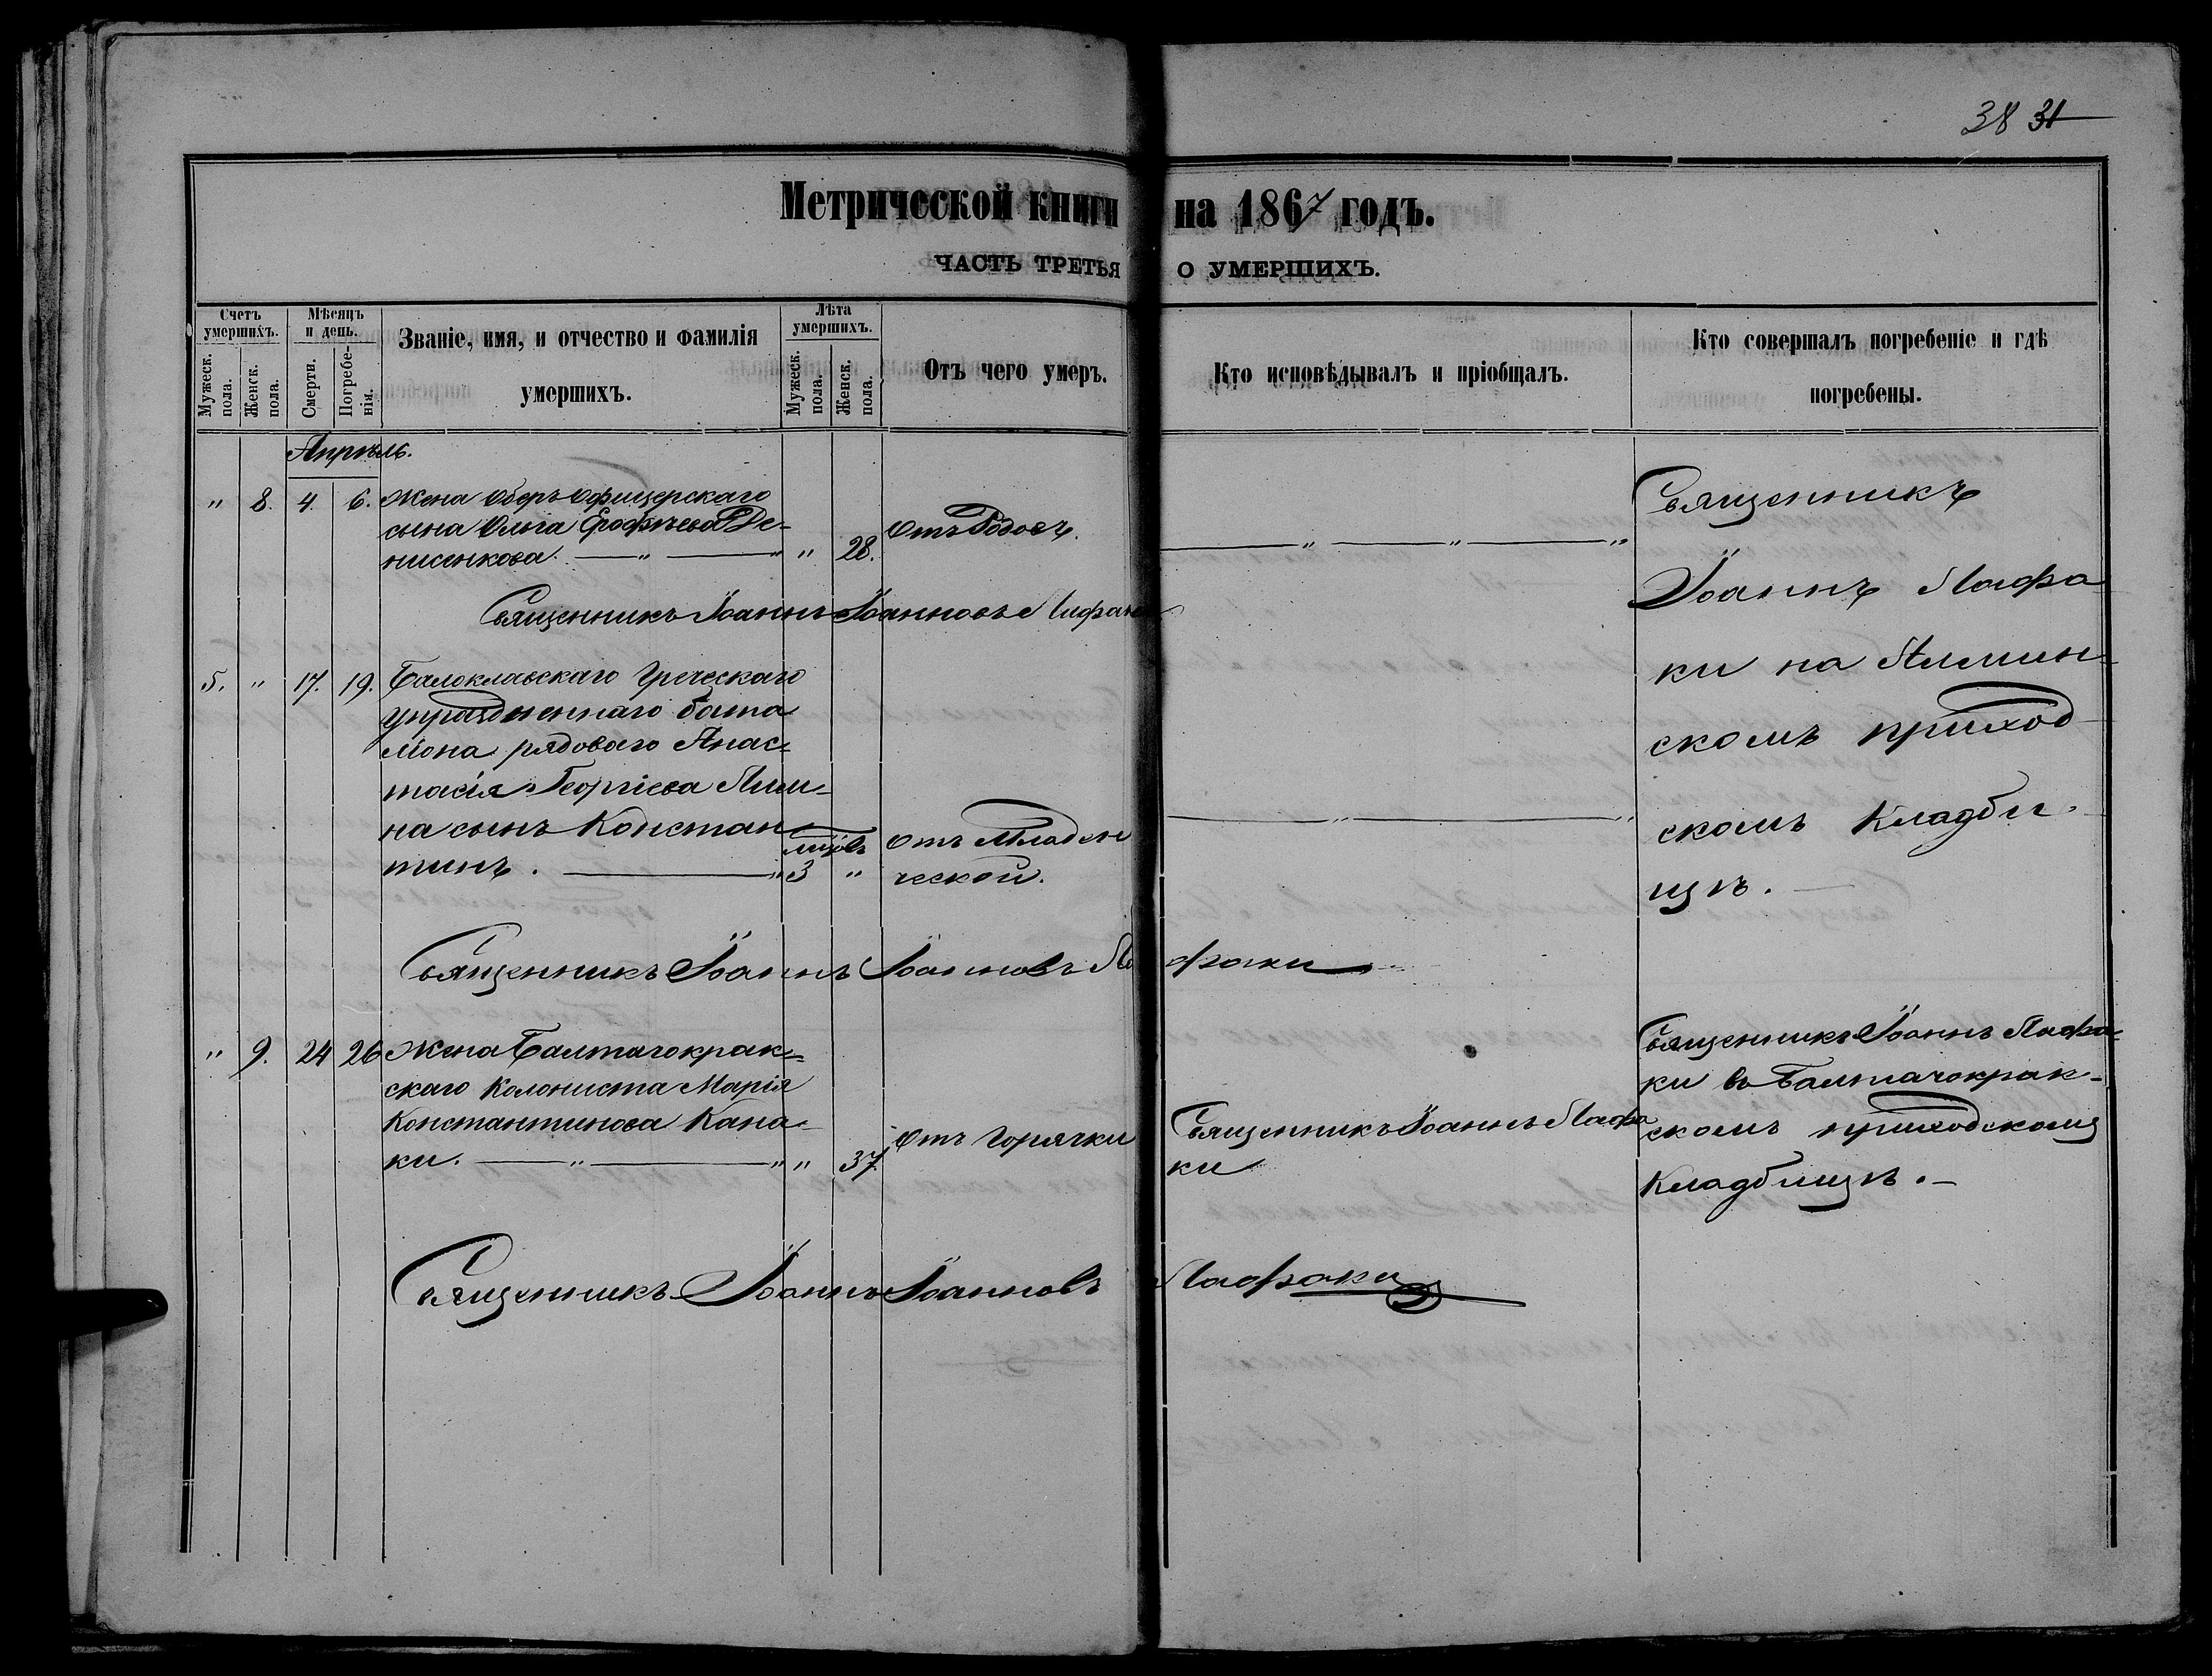 38 31
Метрической книги на 1867 годъ.
ЧАСТЬ ТРЕТЬЯ О УМЕРШИХЪ.
Счетъ умершихъ.
Мужеск. пола.
Женск. пола.
Мѣсяцъ и день.
Смерти.
Погребенія.
Званіе, имя, и отчество и фамилія
умершихъ.
Лѣта умершихъ.
Мужеск. пола.
Женск. пола.
Отъ чего умеръ.
Кто исповѣдывалъ и пріобщалъ.
Кто совершалъ погребеніе и гдѣ
погребены.
Апрѣль.
" 8. 4. 6. Жена Оберъ Офицерскаго
сына Ольга Ерофѣева Де-
нисенкова. " " " 28.
Отъ Родовъ.
" " "
Священникъ
Іоаннъ Лафа
ки на Алмин-
скомъ приход
скомъ Кладби-
щѣ.
Священникъ Іоаннъ Іоанновъ Лафаки
5. " 17. 19. Балоклавскаго Греческаго
упраздненнаго бата
ліона рядоваго Анас-
тасія Георгіева
на сынъ Констан
тинъ. " 3 "
Отъ Младен
ческой.
" "
Священникъ Іоаннъ Іоанновъ Лафаки
" 9. 24 26 Жена Балтачокрак-
скаго Колониста Марія
Константинова Кана-
ки. " " " 37.
Отъ Горячки
Священникъ Іоаннъ Лафа
ки
Священникъ Іоаннъ Лафа-
ки въ Балтачокрак-
скомъ приходскомъ
Кладбищѣ.
Священникъ Іоаннъ Іоанновъ Лафаки